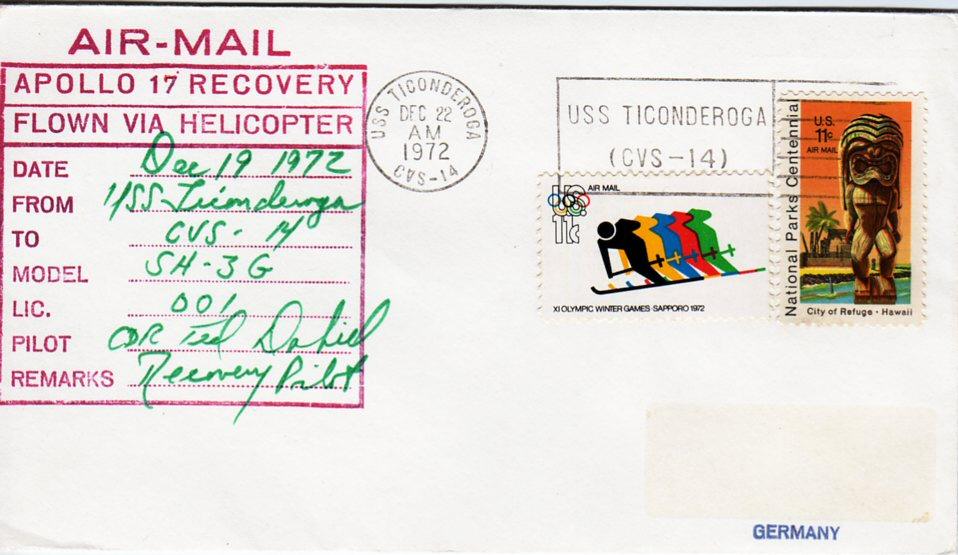 AIR-MAIL
APOLLO 17 RECOVERY
FLOWN VIA HELICOPTER
DATE Dec 19 1972
FROM USS Ticonderoga
TO CVS-14
MODEL SH-3G
LIC. 001
PILOT CDR Ted
REMARKS Recovery Pilot
USS TICONDEROGA
DEC 22
AM
1972
CVS-14
USS TICONDEROGA
(CVS-14)
U.S. AIR MAIL
11c
XI OLYMPIC WINTER GAMES·SAPPORO 1972
National Parks Centennial
U.S.
11c
AIR MAIL
City of Refuge · Hawaii
GERMANY